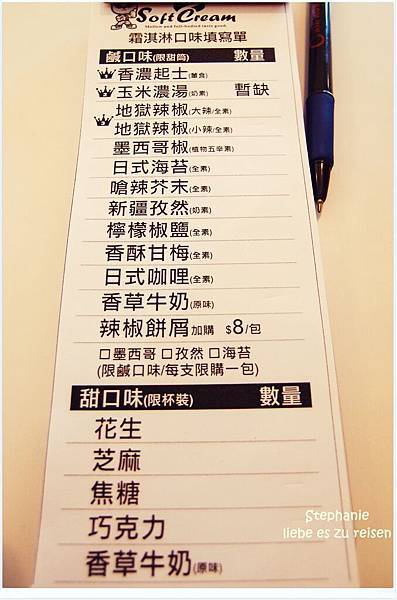 Soft Cream
Mellow and full-bodied taste good.
霜淇淋口味填寫單
鹹口味(限甜筒) 數量
香濃起士(葷食)
玉米濃湯(奶素) 暫缺
地獄辣椒(大辣/全素)
地獄辣椒(小辣/全素)
墨西哥椒(植物五辛素)
日式海苔(全素)
嗆辣芥末(全素)
新疆孜然(奶素)
檸檬椒鹽(全素)
香酥甘梅(全素)
日式咖哩(全素)
香草牛奶(原味)
辣椒餅屑加購 $8/包
□墨西哥 □孜然 □海苔
(限鹹口味/每支限購一包)
甜口味(限杯裝) 數量
花生
芝麻
焦糖
巧克力
香草牛奶(原味)
Stephanie
liebe es zu reisen